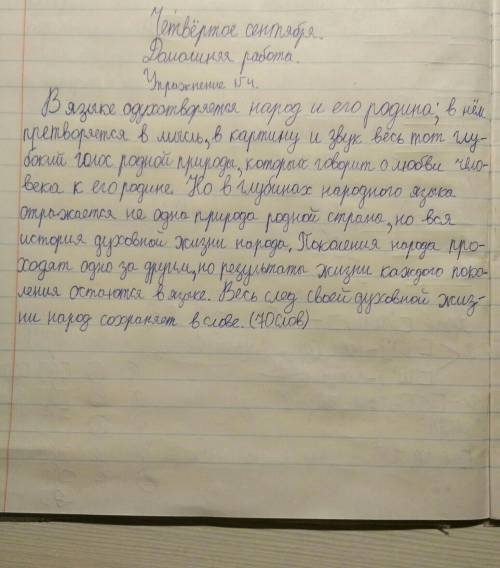 Четвёртое сентября.
Домашняя работа.
Упражнение №4.
В языке одухотворяется народ и его родина; в нём
претворяется в мысль, в картину и звук весь тот глу-
бокий голос родной природы, которых говорит о любви чело-
века к его родине. Но в глубинах народного языка
отражается не одна природа родной страна, но вся
история духовной жизни народа. Поколения народа про-
ходят одно за другим, но результаты жизни каждого поко-
ления остаются в языке. Весь след своей духовной жиз-
ни народ сохраняет в слове. (70слов)